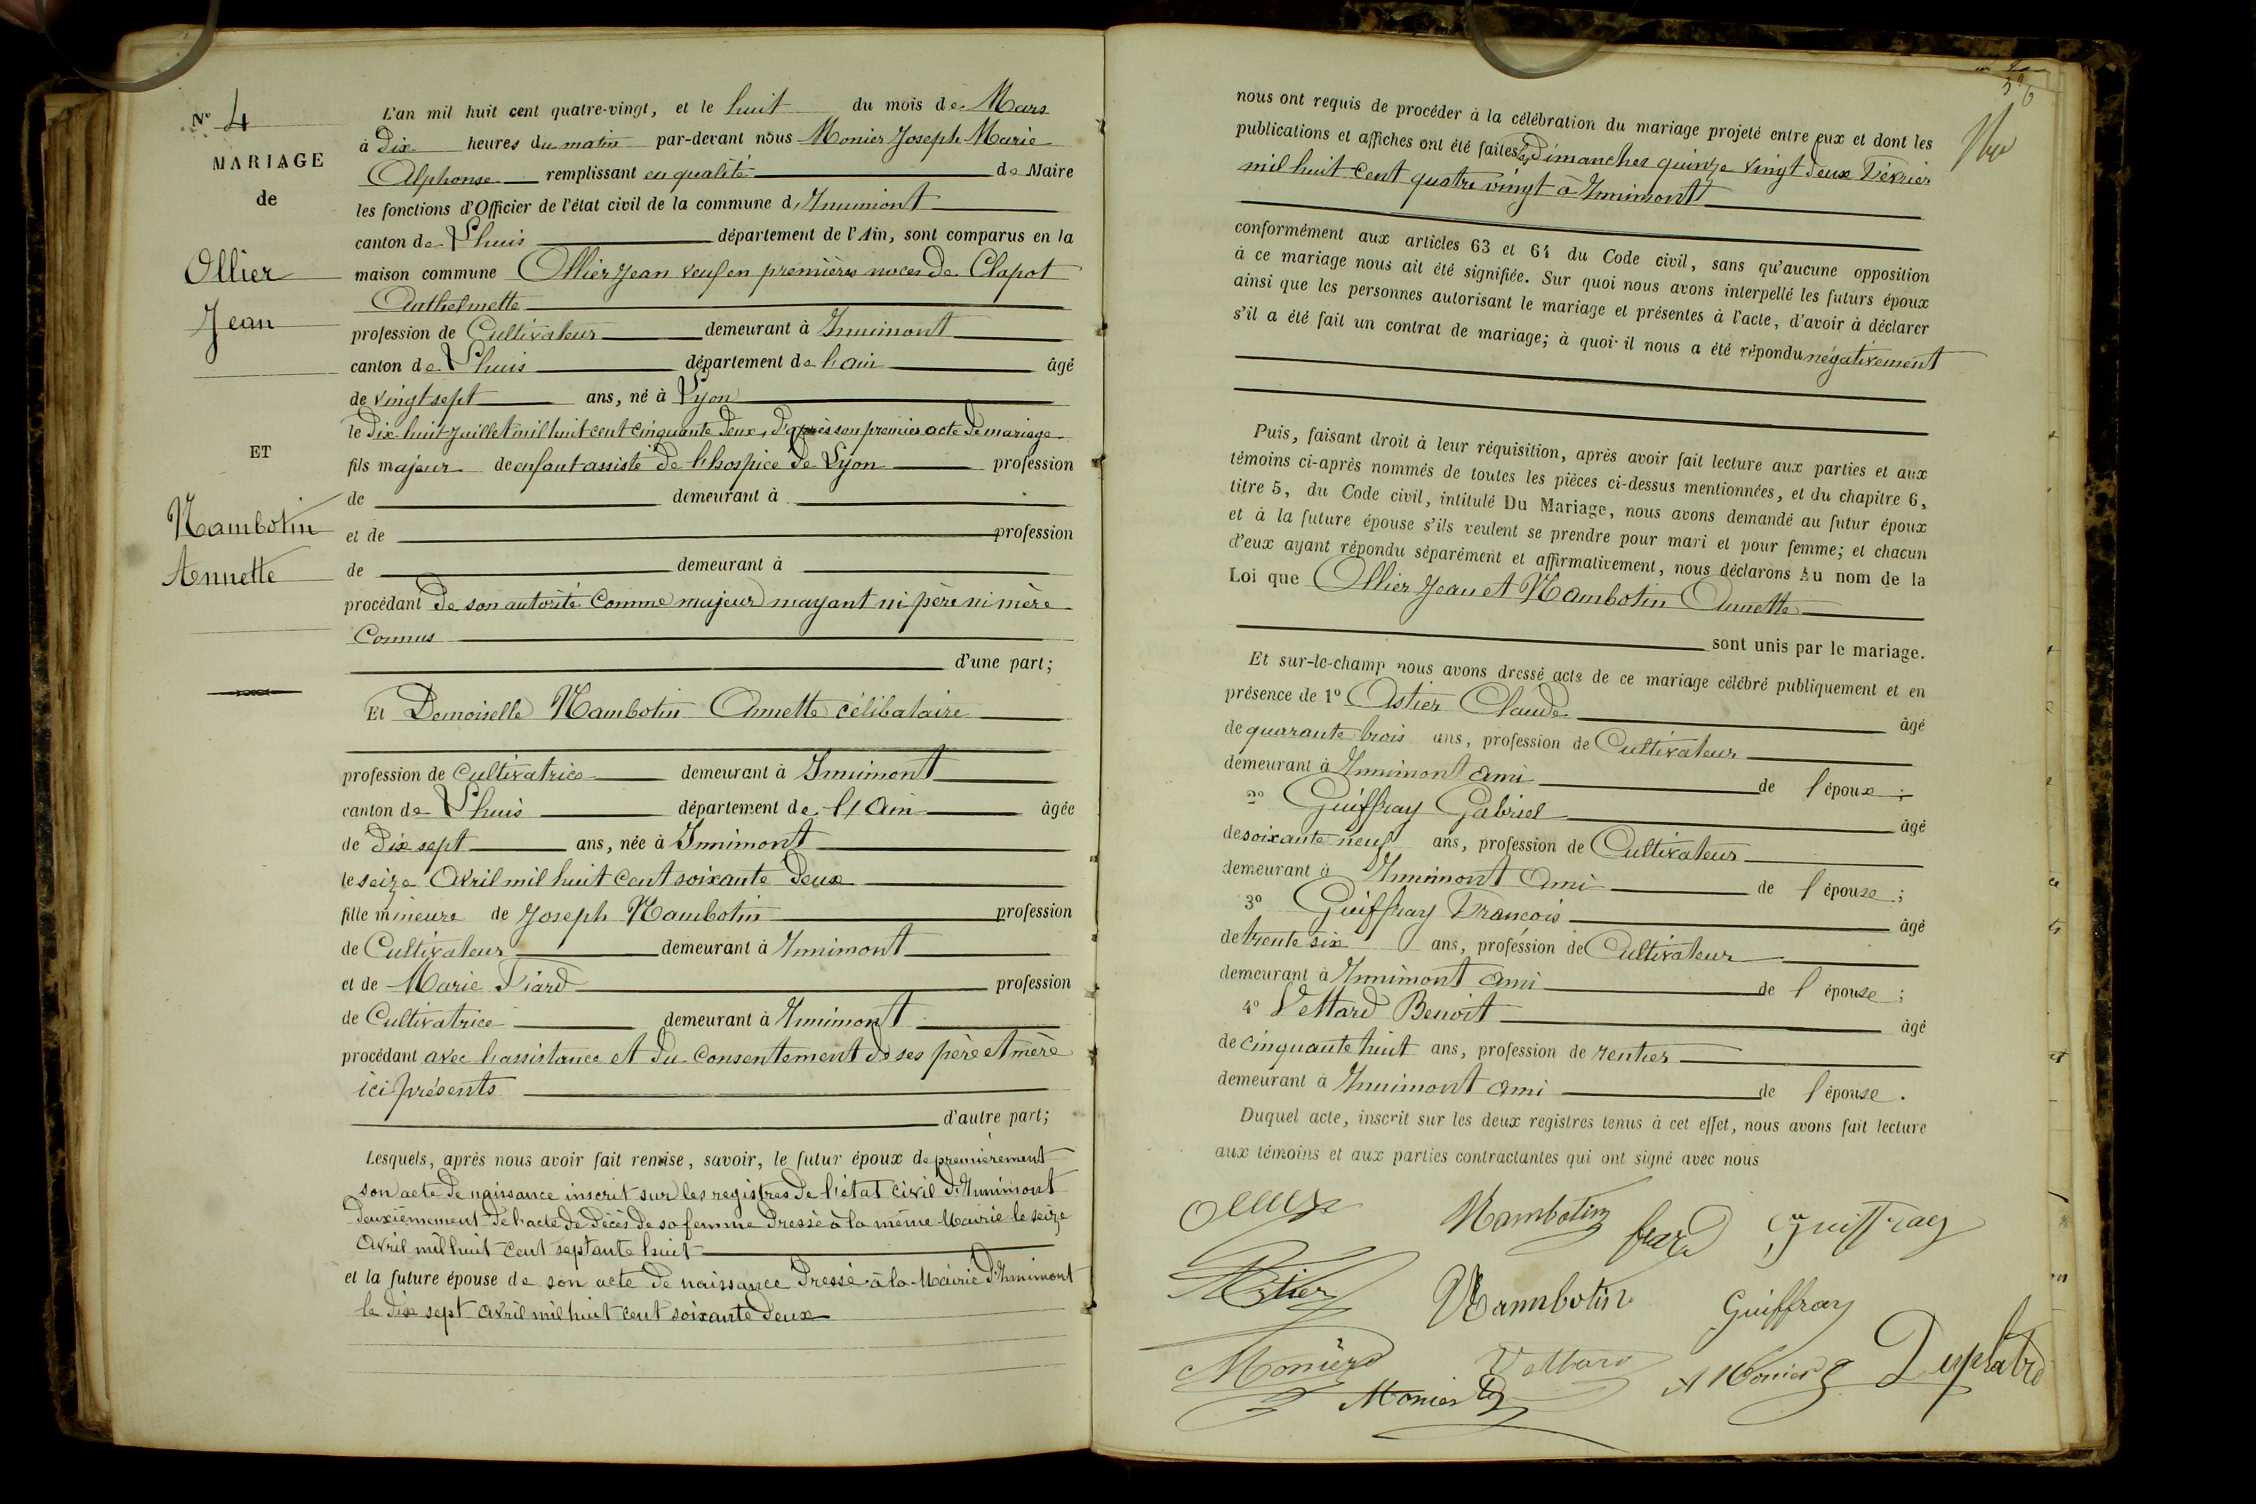 Nº 4
MARIAGE
de
Ollier
Jean
ET
Nambotin
Annette
L'an mil huit cent quatre-vingt, et le huit du mois de Mars
à Dix heures du matin par-devant nous Monier Joseph Marie
Alphonse remplissant en qualité de Maire
les fonctions d'Officier de l'état civil de la commune d'Innimont
canton de Lhuis département de l'Ain, sont comparus en la
maison commune Ollier Jean veuf en premières noces de Clapot
Anthelmette
profession de Cultivateur demeurant à Innimont
canton de Lhuis département de l'ain âgé
de vingt sept ans, né à Lyon
le Dix huit Juillet mil huit cent cinquante Deux, d'après son premier acte De mariage
fils majeur de enfant assisté de l'hospice de Lyon profession
de demeurant à
et de profession
de demeurant à
procédant De son autorité Comme majeur n'ayant ni père ni mère
Connus
d'une part;
Et Demoiselle Nambotin Annette célibataire
profession de cultivatrice demeurant à Innimont
canton de Lhuis département de l'Ain âgée
de Dix sept ans, née à Innimont
le seize Avril mil huit cent soixante Deux
fille mineure de Joseph Nambotin profession
de Cultivateur demeurant à Innimont
et de Marie Fiard profession
de Cultivatrice demeurant à Innimont
procédant avec l'assistance et Du Consentement de ses père et mère
ici présents
d'autre part;
Lesquels, après nous avoir fait remise, savoir, le futur époux de premièrement
son acte De naissance inscrit sur les registres De l'état civil d'Innimont
Deuxièmement De l'acte De Décès De sa femme Dressé à la même Mairie le seize
Avril mil huit cent septante huit
et la future épouse de son acte De naissance Dressé à la Mairie d'Innimont
le Dix sept Avril mil huit cent soixante Deux
nous ont requis de procéder à la célébration du mariage projeté entre eux et dont les
publications et affiches ont été faites les Dimanches quinze vingt deux Février
mil huit cent quatre vingt à Innimont
conformément aux articles 63 et 64 du Code civil, sans qu'aucune opposition
à ce mariage nous ait été signifiée. Sur quoi nous avons interpellé les futurs époux
ainsi que les personnes autorisant le mariage et présentes à l'acte, d'avoir à déclarer
s'il a été fait un contrat de mariage; à quoi il nous a été répondu négativement
Puis, faisant droit à leur réquisition, après avoir fait lecture aux parties et aux
témoins ci-après nommés de toutes les pièces ci-dessus mentionnées, et du chapitre 6,
titre 5, du Code civil, intitulé Du Mariage, nous avons demandé au futur époux
et à la future épouse s'ils veulent se prendre pour mari et pour femme; et chacun
d'eux ayant répondu séparément et affirmativement, nous déclarons Au nom de la
Loi que Ollier Jean et Nambotin Annette
sont unis par le mariage.
Et sur-le-champ nous avons dressé acte de ce mariage célébré publiquement et en
présence de 1º Astier Claude âgé
de quarante trois ans, profession de Cultivateur
demeurant à Innimont ami de l'époux;
2º Guiffray Gabriel âgé
de soixante neuf ans, profession de Cultivateur
demeurant à Innimont Ami de l'épouse;
3º Guiffray François âgé
de trente six ans, profession de Cultivateur
demeurant à Innimont ami de l'épouse;
4º Vettard Benoit âgé
de cinquante huit ans, profession de rentier
demeurant à Innimont ami de l'épouse.
Duquel acte, inscrit sur les deux registres tenus à cet effet, nous avons fait lecture
aux témoins et aux parties contractantes qui ont signé avec nous
Nambotin fiard Guiffray
Astier Nambotin Guiffray
Monier Vettard A Monier Duplatre
Monier